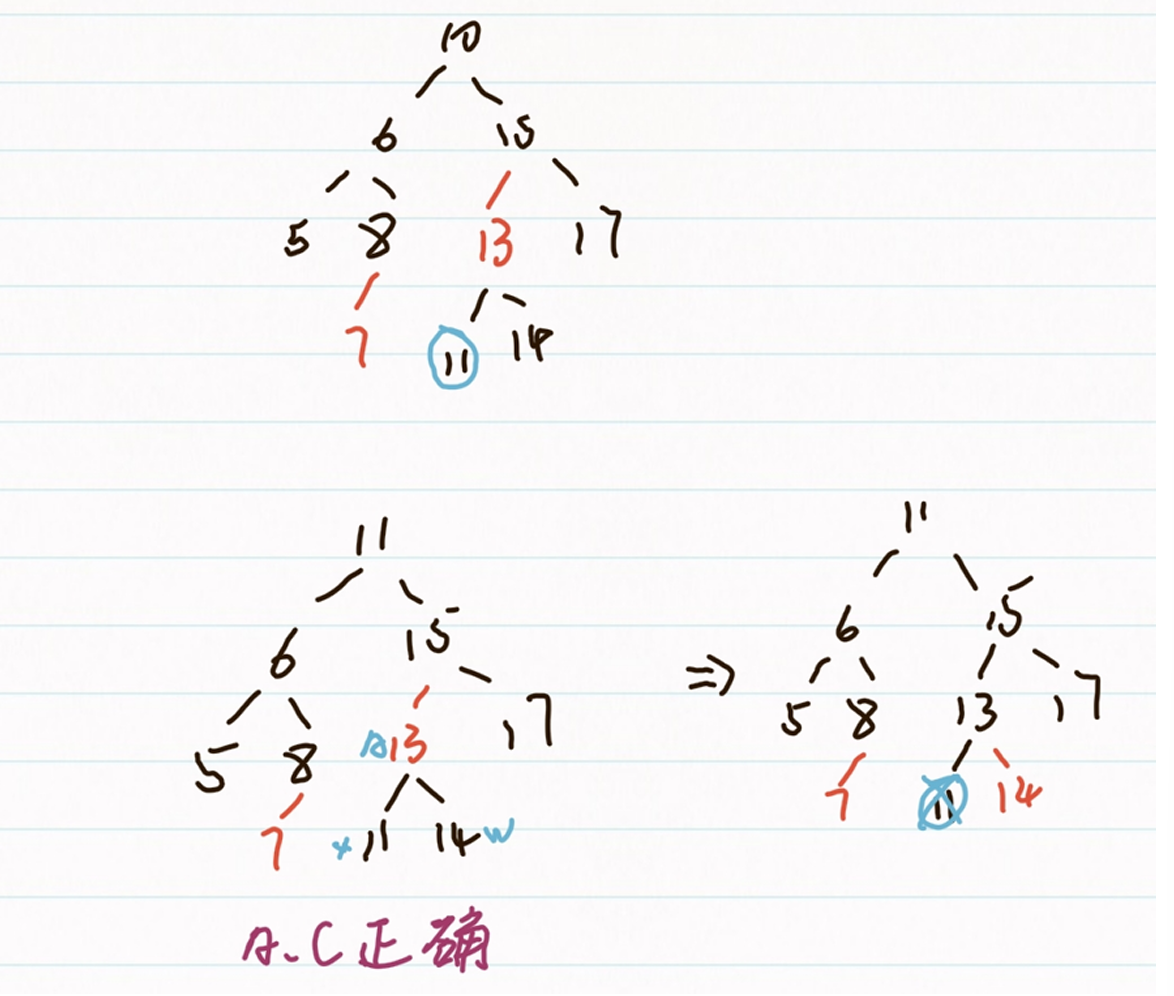 10
6 15
5 8 13 17
7 11 14
11
6 15
5 8 A 13 17
7 x 11 14 w
⇒
11
6 15
5 8 13 17
7 11 14
A、C正确